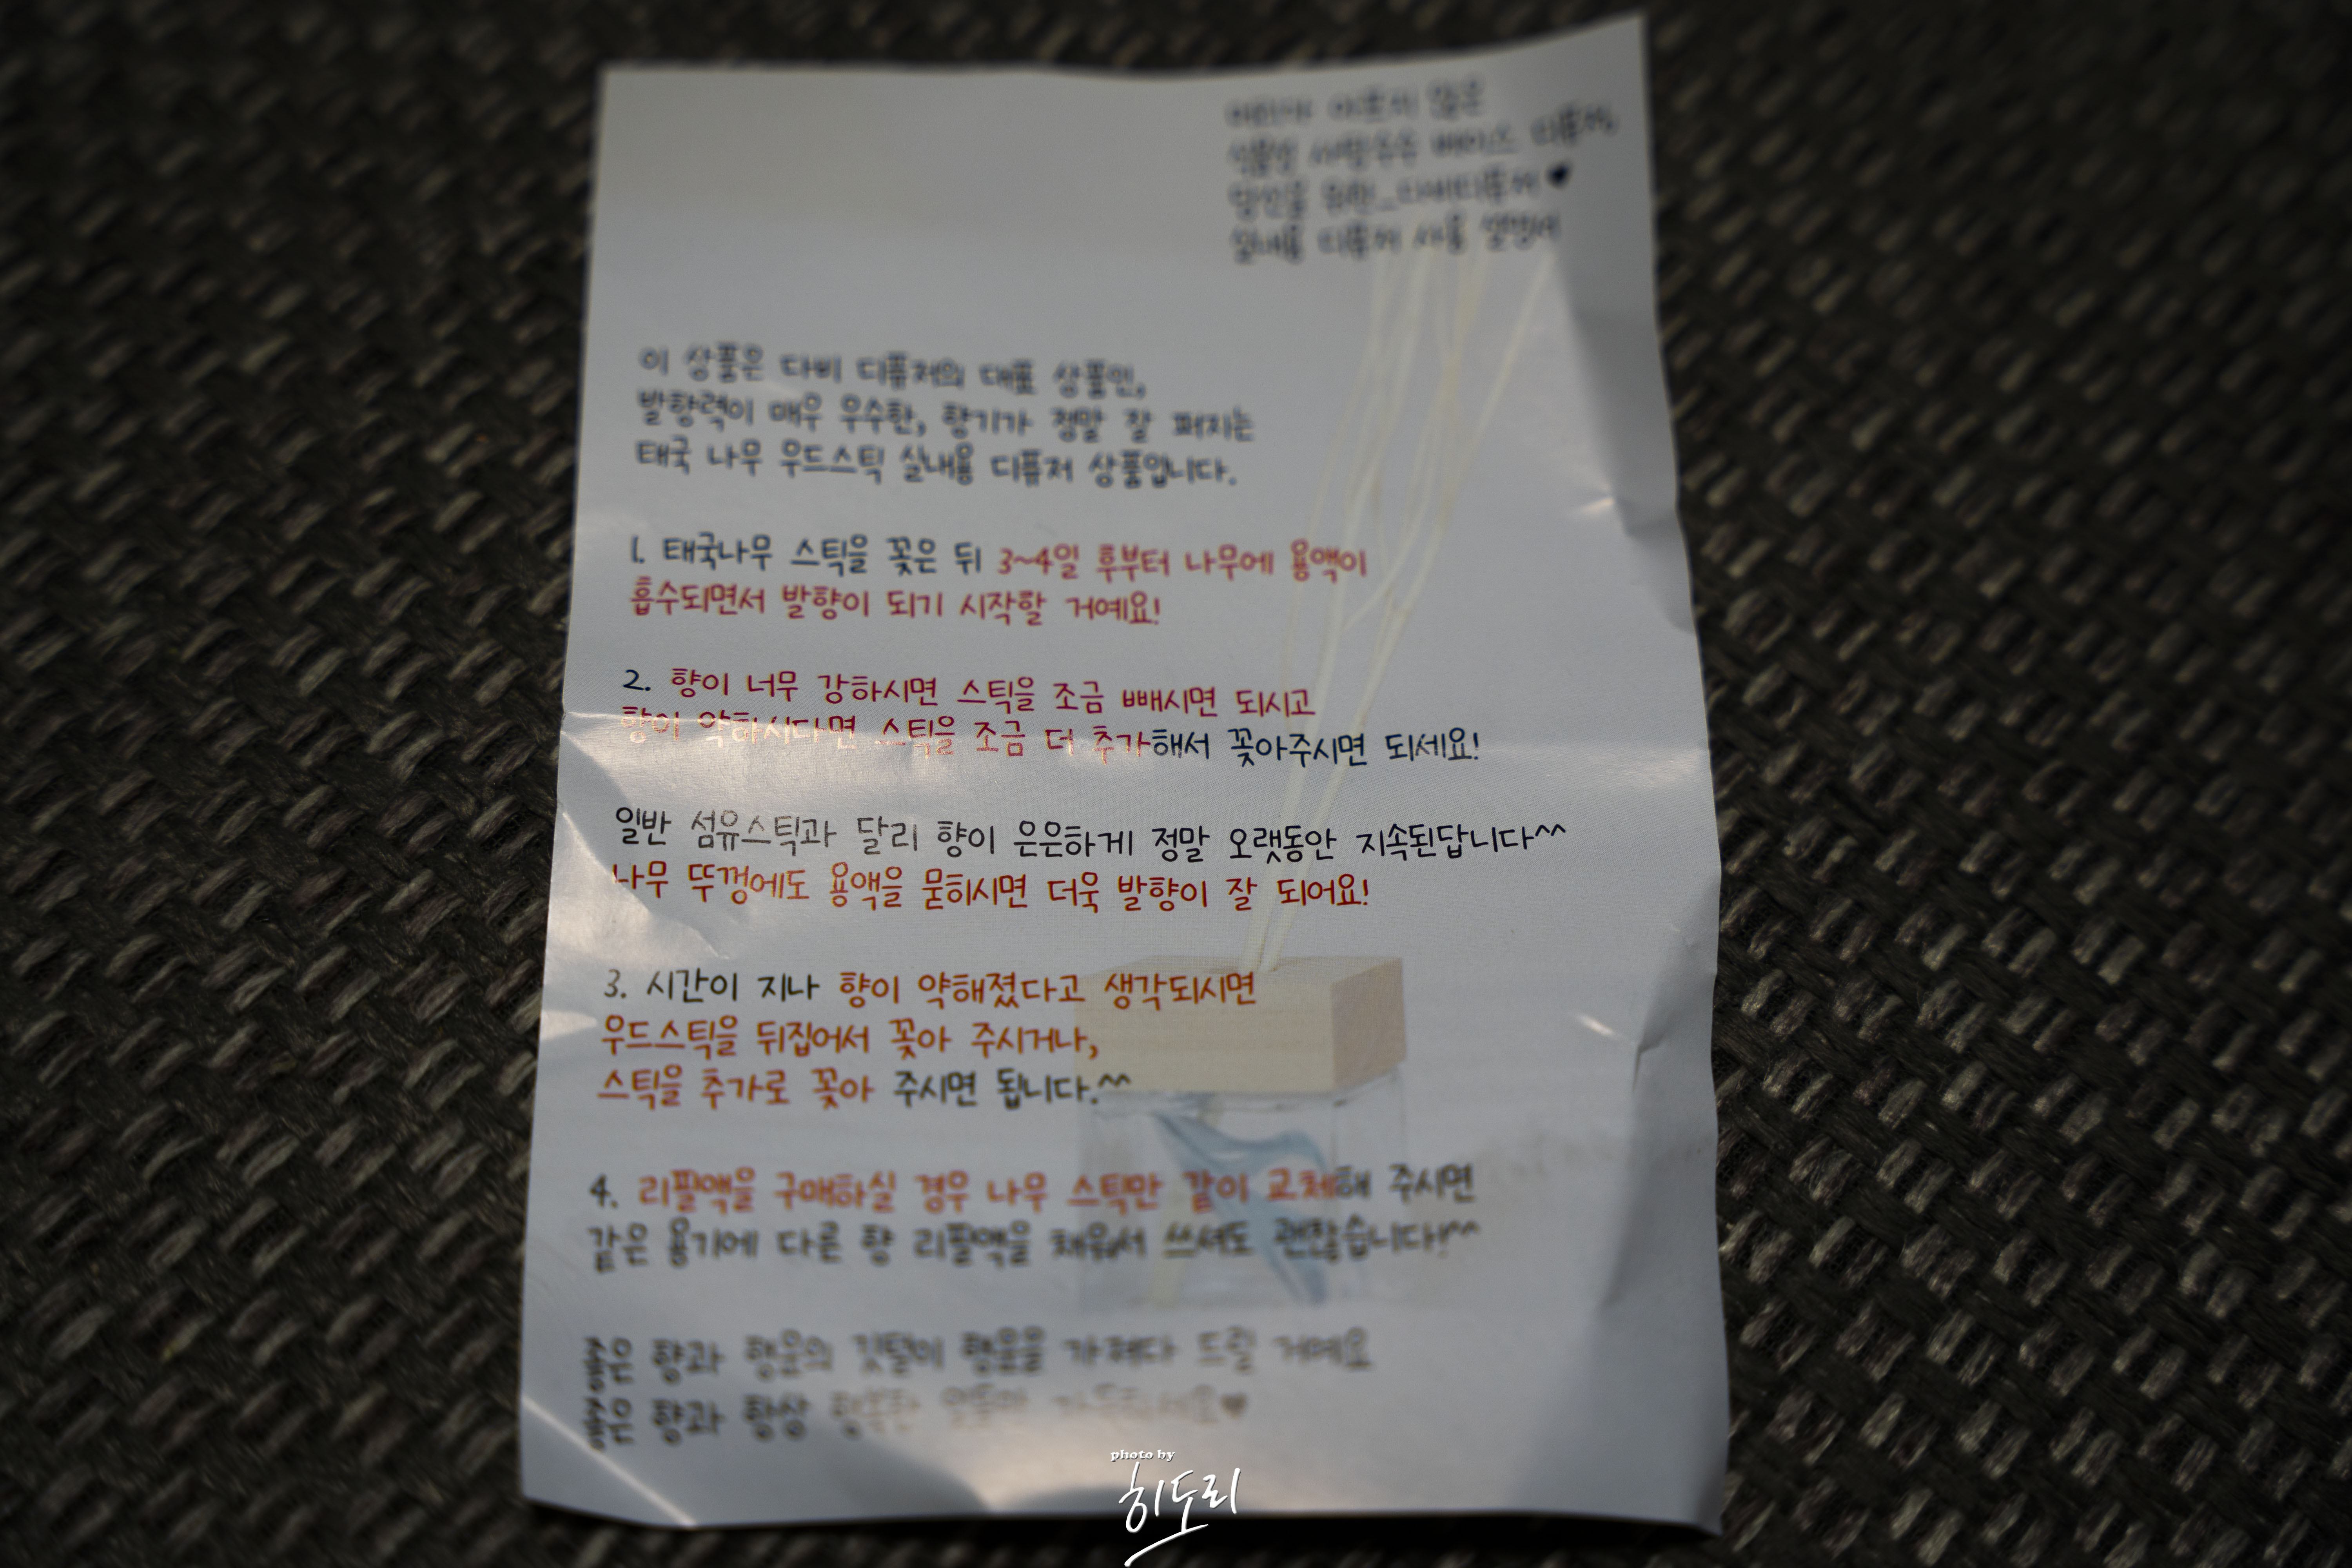 머리가 아프지 않은
식물성 에탄올 베이스 디퓨저,
당신을 위한_다비디퓨저♥
실내용 디퓨저 사용 설명서
이 상품은 다비 디퓨저의 대표 상품인,
발향력이 매우 우수한, 향기가 정말 잘 퍼지는
태국 나무 우드스틱 실내용 디퓨저 상품입니다.
1. 태국나무 스틱을 꽂은 뒤 3~4일 후부터 나무에 용액이
흡수되면서 발향이 되기 시작할 거예요!
2. 향이 너무 강하시면 스틱을 조금 빼시면 되시고
향이 약하시다면 스틱을 조금 더 추가해서 꽂아주시면 되세요!
일반 섬유스틱과 달리 향이 은은하게 정말 오랫동안 지속된답니다^^
나무 뚜껑에도 용액을 묻히시면 더욱 발향이 잘 되어요!
3. 시간이 지나 향이 약해졌다고 생각되시면
우드스틱을 뒤집어서 꽂아 주시거나,
스틱을 추가로 꽂아 주시면 됩니다.^^
4. 리필액을 구매하실 경우 나무 스틱만 같이 교체해 주시면
같은 용기에 다른 향 리필액을 채워서 쓰셔도 괜찮습니다!^^
좋은 향과 행운의 깃털이 행운을 가져다 드릴 거예요
좋은 향과 항상 행복한 일들만 가득하세요♥
photo by
히도리